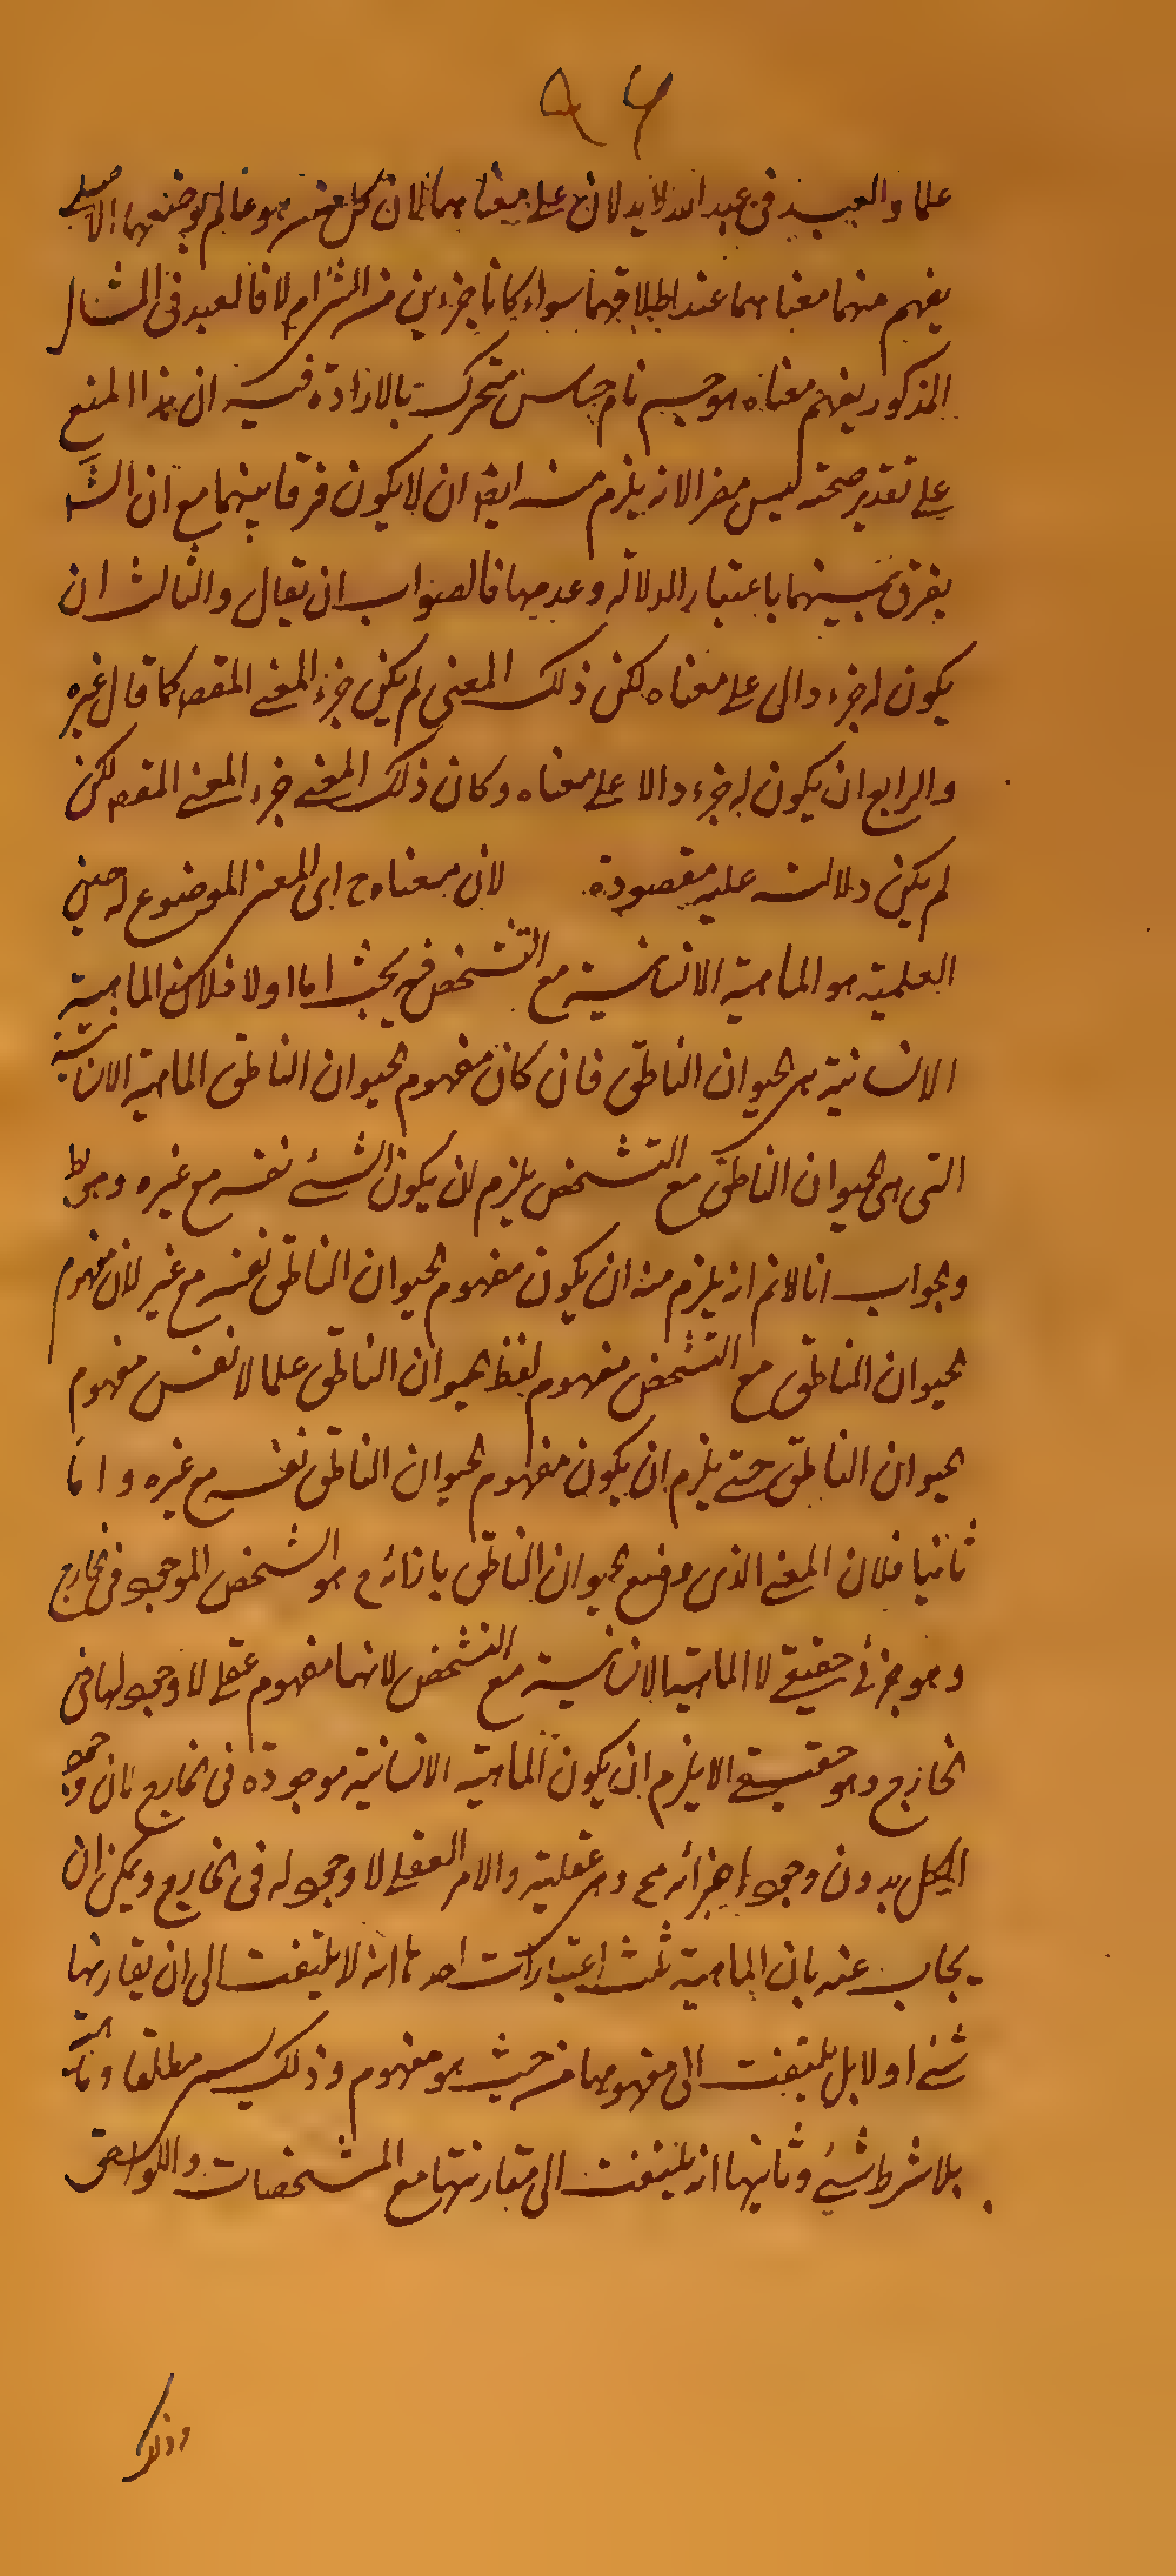 ٩٦
علما والعبد فى عبد الله لا يدلان على معناهما لان كل من هو عالم بوضعهما الاصلى
يفهم منهما معناهما عند اطلاقهما سواء كانا جزءين من الشئ ام لا فالعبد فى المثال
المذكور يفهم معناه هو جسم نام حساس متحرك بالارادة فيه ان هذا المنع
على تقدير صحته ليس مضرا لانه يلزم منه ايضا ان لا يكون فرقا بينهما مع ان الش
يفرق بينهما باعتبار الدلالة وعدمها فالصواب ان يقال والثالث ان
يكون له جزء دال على معناه لكن ذلك المعنى لم يكن جزء المعنى المقصـ كما قال غيره
والرابع ان يكون له جزء دالا على معناه وكان ذلك المعنى جزء المعنى المقصـ لكن
لم يكن دلالته عليه مقصودة لان معناه ح اى المعنى الموضوع له حين
العلمية هو الماهية الانسانية مع التشخص فيه بحث اما اولا فلان الماهية
الانسانية هى الحيوان الناطق فان كان مفهوم الحيوان الناطق الماهية الانسانية
التى هى الحيوان الناطق مع التشخص يلزم ان يكون الشئ نفسه مع غيره وهو بط
والجواب انا لانم انه يلزم منه ان يكون مفهوم الحيوان الناطق نفسه مع غيره لان مفهوم
الحيوان الناطق مع التشخص مفهوم لفظ الحيوان الناطق علما لا نفس مفهوم
الحيوان الناطق حتى يلزم ان يكون مفهوم الحيوان الناطق نفسه مع غيره واما
ثانيا فلان المعنى الذى وضع الحيوان الناطق بازائه ع هو الشخص الموجود فى الخارج
وهو جزئى حقيقى لا الماهية الانسانية مع التشخص لانها مفهوم عقلى لا وجود لها فى
الخارج وهو حقيقى الا يلزم ان يكون الماهية الانسانية موجودة فى الخارج لان وجود
الكل بدون وجود اجزائه مح وهى عقلية والامر العقلى لا وجود له فى الخارج ويمكن ان
يجاب عنه بان الماهية ثلث اعتبارات احدها انه لا يلتفت الى ان يقارنها
شئ اولا بل يلتفت الى مفهومها من حيث هو مفهوم وذلك يسمى مطلقا وماهية
بلا شرط شئ وثانيها انه يلتفت الى مقارنتها مع المشخصات واللواحق
وذلك